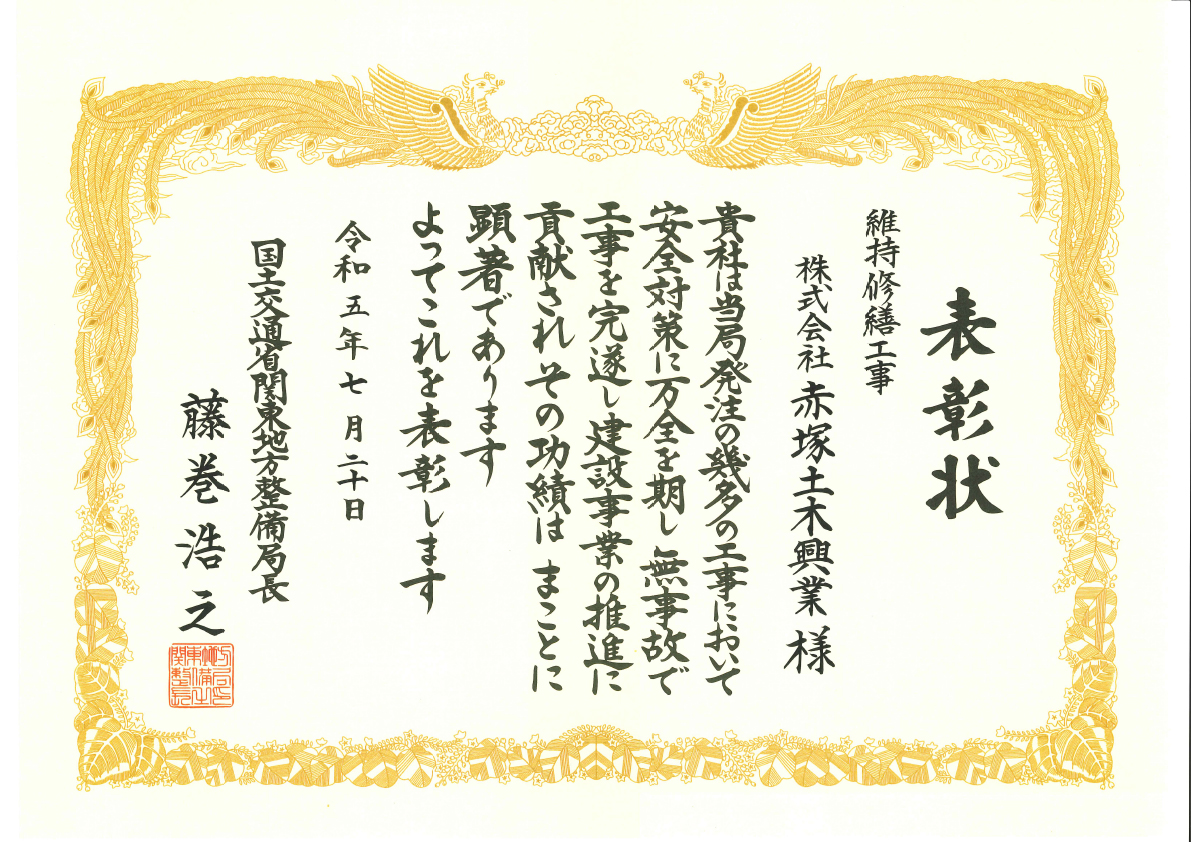 表彰状
維持修繕工事
株式会社 赤塚土木興業 様
貴社は当局発注の幾多の工事において
安全対策に万全を期し 無事故で
工事を完遂し 建設事業の推進に
貢献され その功績は まことに
顕著であります
よってこれを表彰します
令和五年七月二十日
国土交通省関東地方整備局長
藤巻浩之